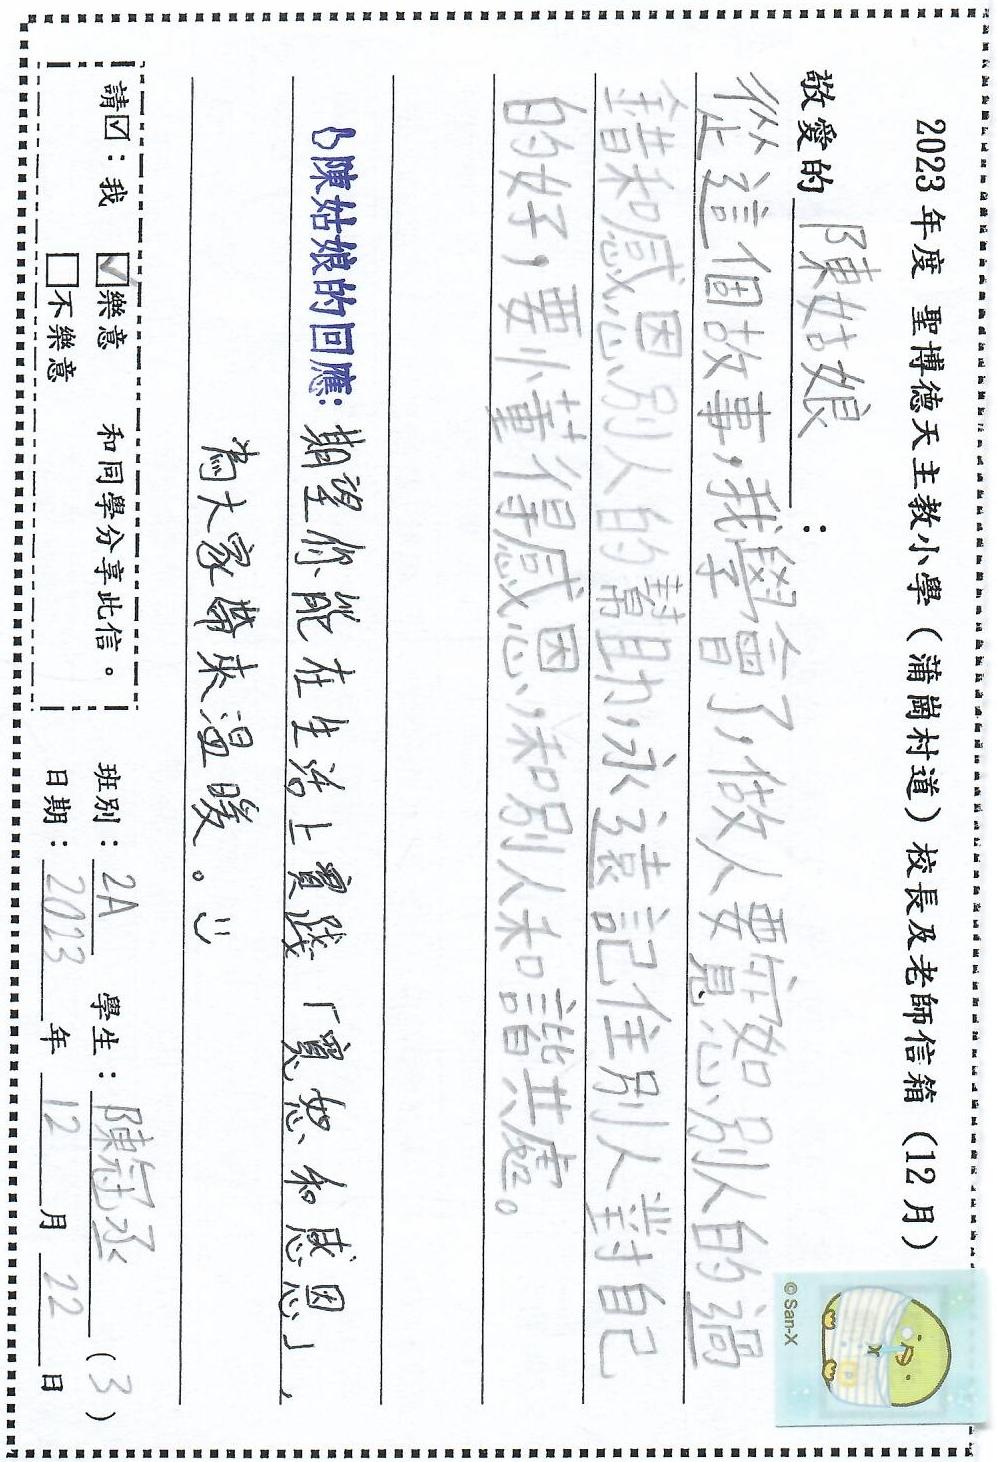 2023 年度 聖博德天主教小學（蒲崗村道）校長及老師信箱（12 月）
敬愛的 陳姑娘：
從這個故事，我學會了，做人要寬恕別人的過
錯和感恩別人的幫助，永遠記住別人對自己
的好，要小董得感恩，和別人和諧共處。
陳姑娘的回應：期望你能在生活上實踐「寬恕和感恩」，
為大家帶來溫暖。
請☑：我 ☑樂意 和同學分享此信。
☐不樂意
班別：2A 學生：陳冠丞（3）
日期：2023 年 12 月 22 日
© San-X